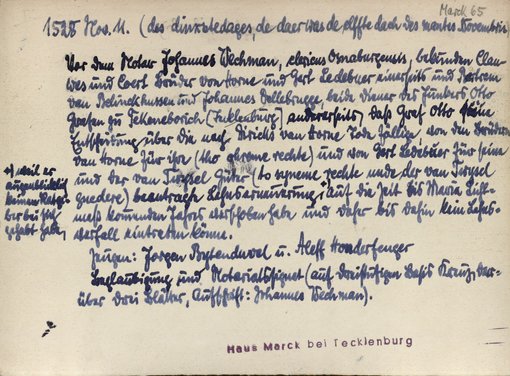 Marck 65
1528 Nov. 11. (des dinxtedages, de daer was de elffte dach des mantes Novembris)
Vor dem Notar Johannes Wechman, clericus Osnaburgensis, bekunden Clau-
wes und Coert Brüder von Horne und Gerl Ledebuer einerseits und Bartram
van Belinckhusen und Johannes Dellebrugge, beide Diener des Junkers Otto
Grafen zu Tekeneborich (Tecklenburg) andererseits, daß Graf Otto seine
Entscheidung über die nach Dirichs van Horne Tode fällige, von den Brüdern
van Horne für ihre (tho ehreme rechte) und von Gerl Ledebuer für seine
und der van Güter (to syneme rechte unde der van
guedere) beantragte Lehnserneuerung, +) auf die Zeit bis Maria Licht-
meß kommenden Jahres verschoben habe und daher bis dahin kein Lehns-
verfall eintreten könne.
+) weil er
augenblicklich
keinen Ratge-
ber bei sich
gehabt habe,
Zeugen: Jorgen u. Aleff
Beglaubigung und Notariatssignet (auf dreistufigem Basis Kreuz, dar-
über drei Blätter, Aufschrift: Johannes Wechman).
Haus Marck bei Tecklenburg